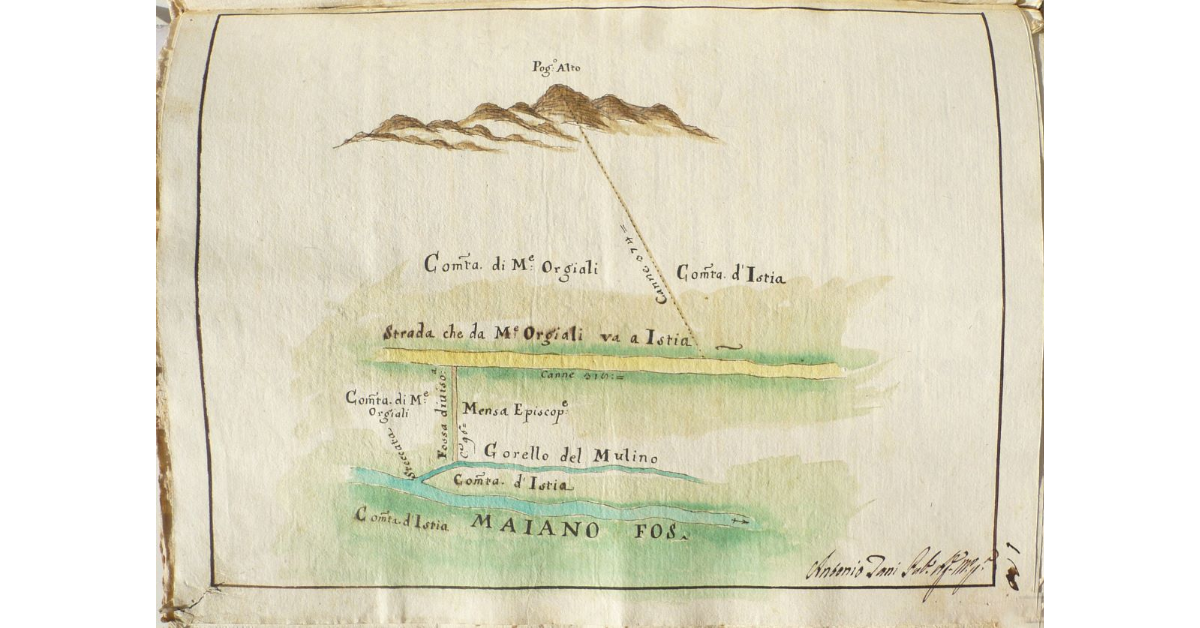 Pog.º Alto
Com̃ta. di M.e Orgiali
Com̃ta. d'Istia
Canne
Strada che da M.e Orgiali va a Istia
Canne
Com̃ta. di M.e
Orgiali
Fossa diuiso.a
Mensa Episcop.e
Steccata
Gorello del Mulino
Com̃ta. d'Istia
Com̃ta. d'Istia
MAIANO FOS.
Antonio